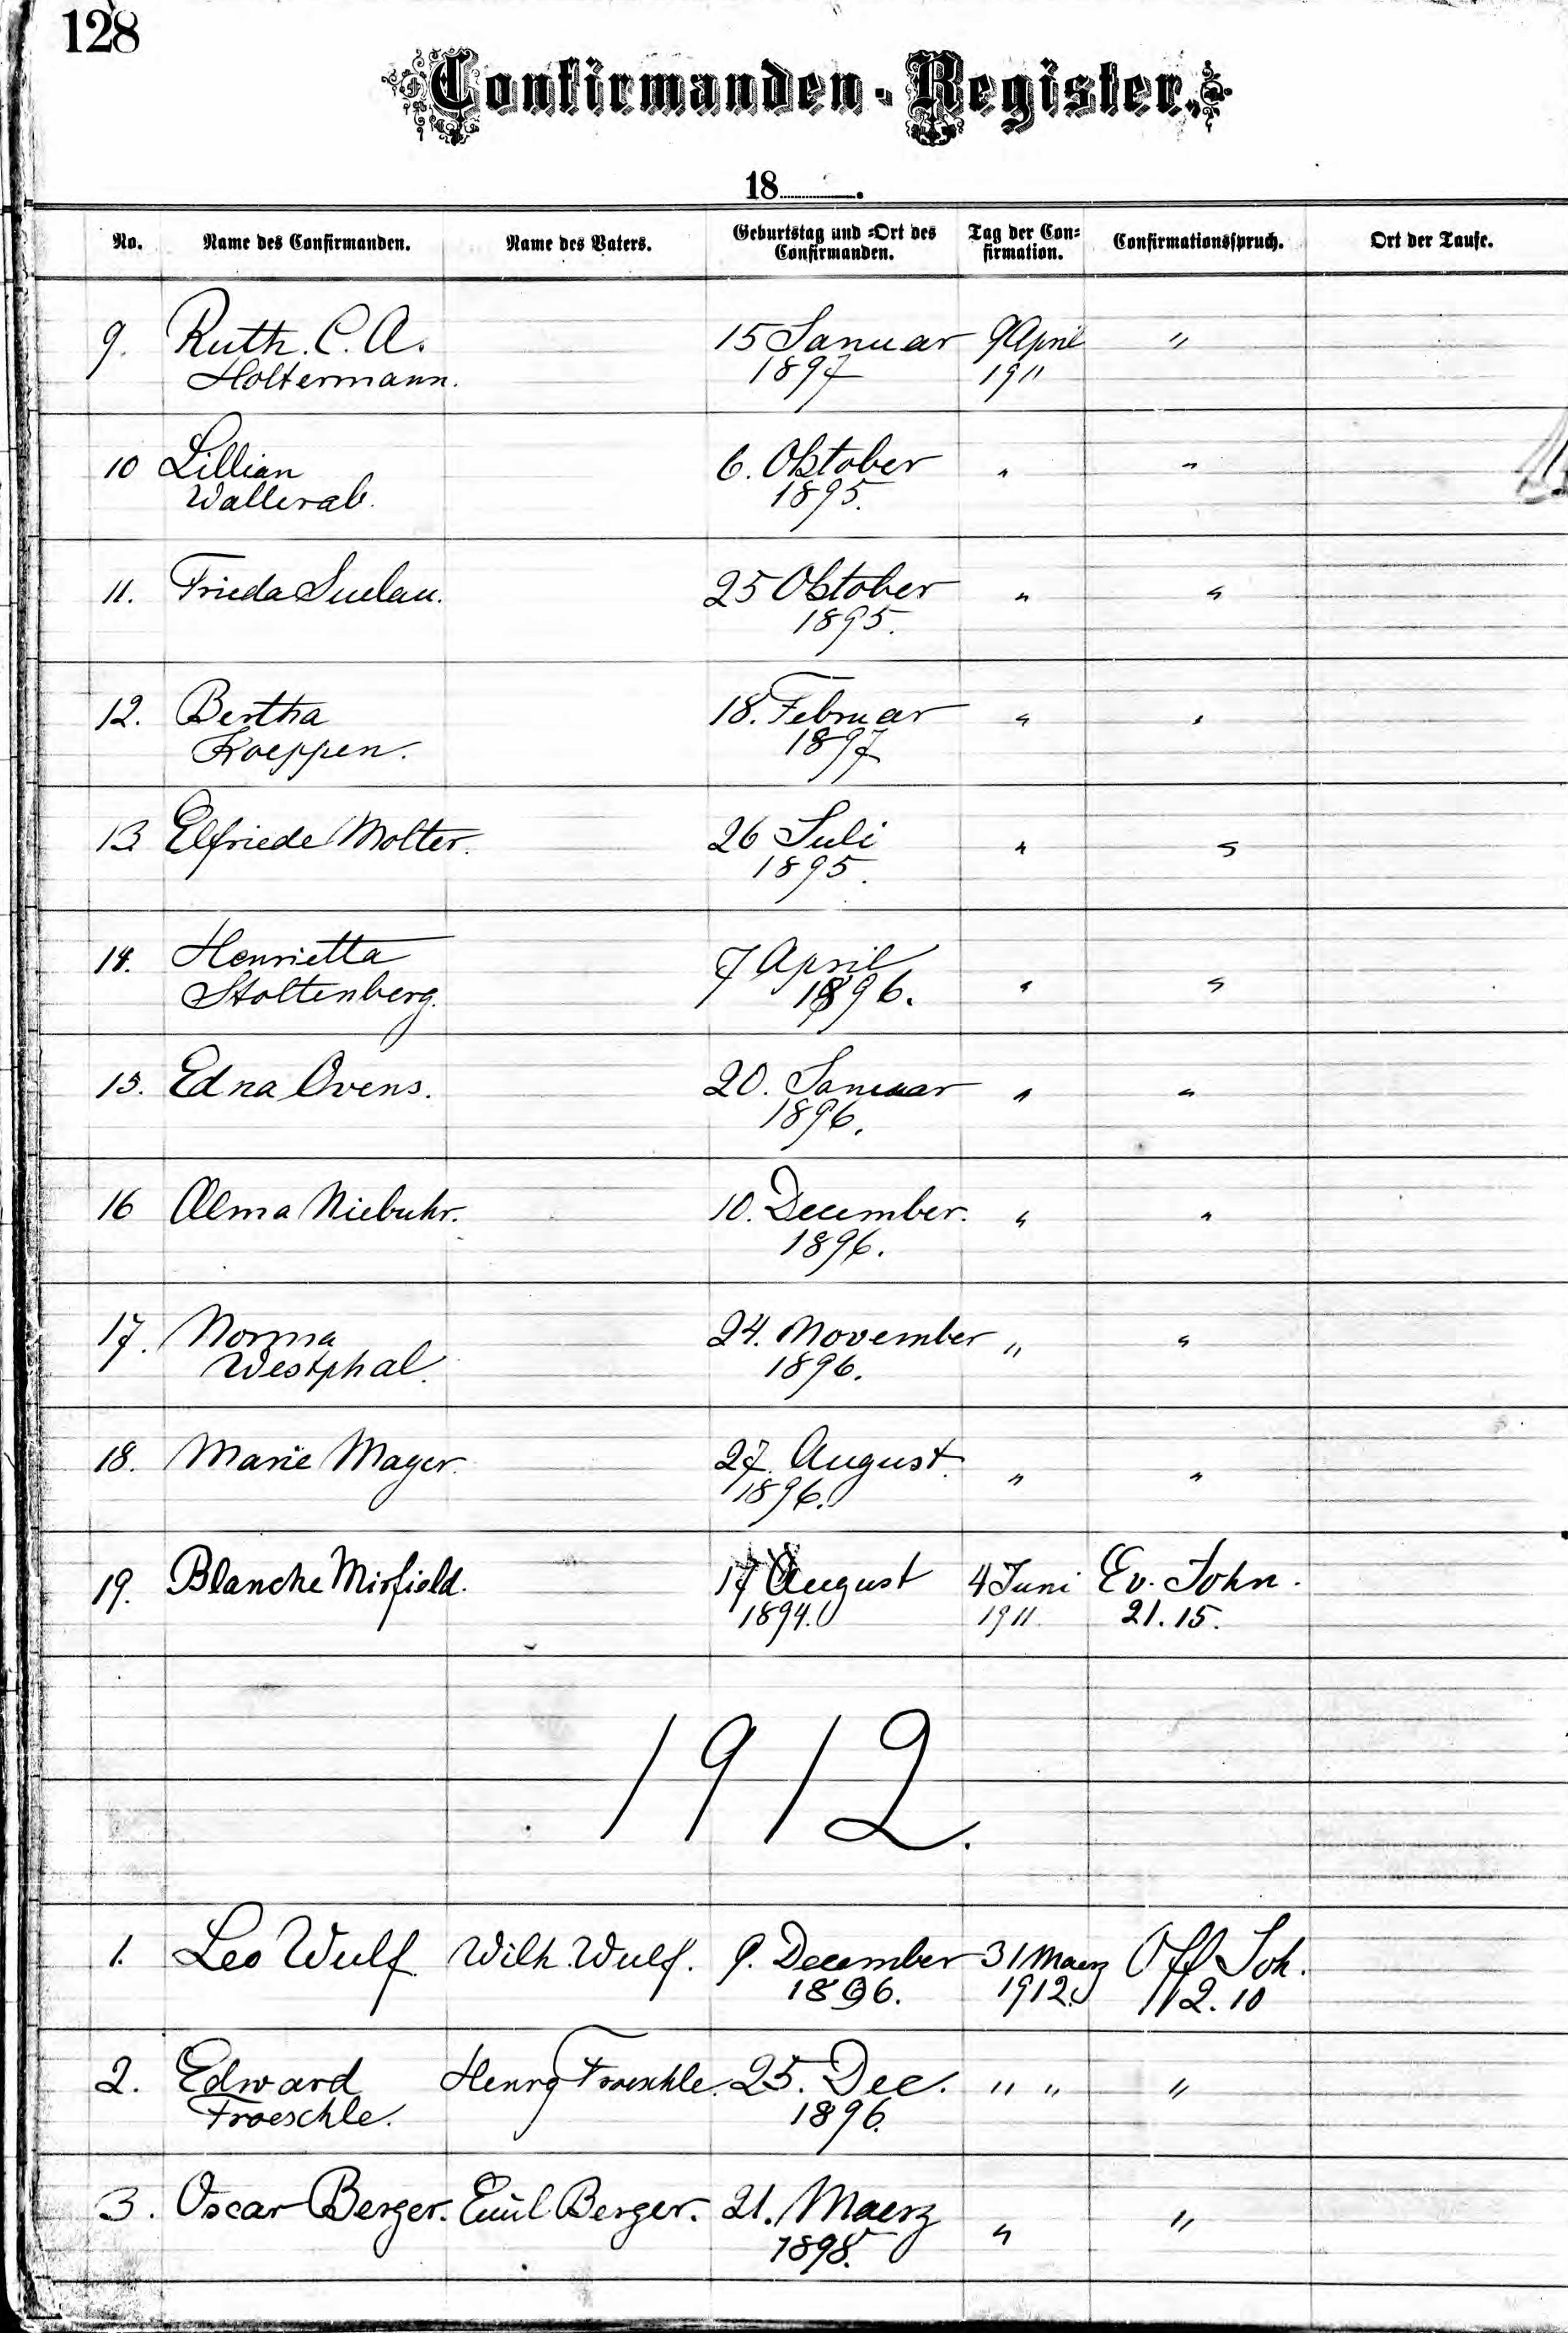 128
Confirmanden-Register.
18........
No. Name des Confirmanden. Name des Vaters. Geburtstag und =Ort des Confirmanden. Tag der Con=firmation. Confirmationsspruch. Ort der Taufe.
9. Ruth. C. A. 15 Januar 9 April "
Holtermann. 1897 1911
10 Lillian 6. Oktober " "
Wallerab. 1895.
11. Frieda Suelau. 25 Oktober " "
1895.
12. Bertha 18. Februar " "
Koeppen. 1897
13. Elfriede Molter. 26 Juli " "
1895.
14. Henrietta 7 April " "
Stoltenberg. 1896.
15. Edna Ovens. 20. Januar " "
1896.
16 Alma Niebuhr. 10. December. " "
1896.
17. Norma 24. November " "
Westphal. 1896.
18. Marie Mayer. 27. August. " "
1896.
19. Blanche Mirfield. 17 August 4 Juni Ev. John.
1894. 1911. 21. 15.
1912.
1. Leo Wulf. Wilh. Wulf. 9. December 31 Maerz Off Joh.
1896. 1912. 2. 10
2. Edward Henry Froeschle. 25. Dec. " " "
Froeschle. 1896.
3. Oscar Berger. Emil Berger. 21. Maerz " "
1898.